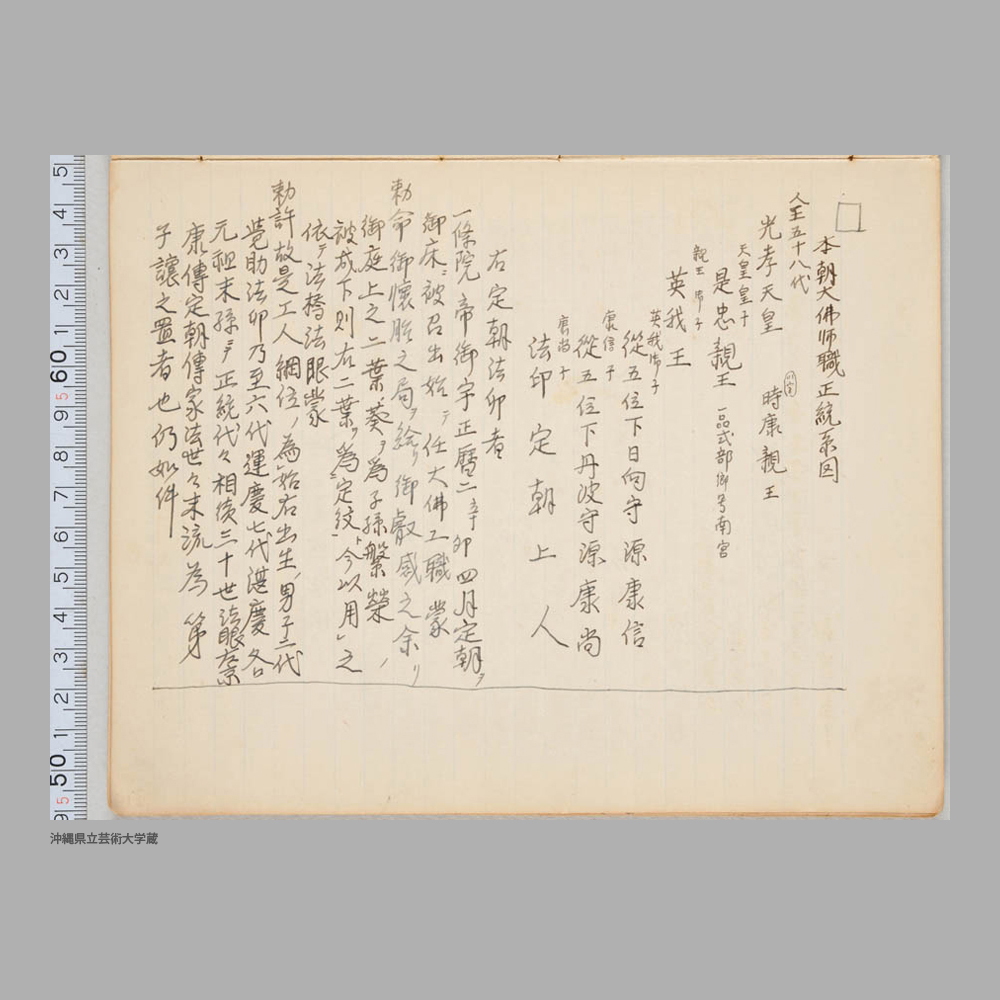 本朝大佛師職正統系図
人王五十八代
光孝天皇 時康親王
天皇皇子
是忠親王 一品式部卿号南宮
親王御子
英我王
英我御子
從五位下日向守源康信
康信子
從五位下丹波守源康尚
康尚子
法印定朝上人
右定朝法印者
一條院帝御宇正暦二辛卯四月定朝ヲ
御床ニ被召出始テ任大佛工職蒙
勅命御懐胎之局ヲ絵リ御叡感之余リ
御庭上之二葉葵ヲ為子孫繁榮ノ
被成下則右二葉ヲ為定紋ト今以用之
依テ法橋法眼蒙
勅許故是工人綱位ノ為始右出生ノ男子二代
覚助法印乃至六代運慶七代湛慶各
元祖末孫ニテ正統代々相續三十世法眼左京
康傳定朝傳家法世々末流為第
子譲之置者也仍如件
5 4 3 2 1 60 9 8 7 6 5 4 3 2 1 50 9
沖縄県立芸術大学蔵